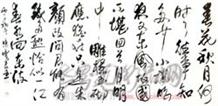 春花秋月何
时了往事知
多少小樓昨
夜又東風故國
不堪回首月明
中雕欄玉砌
應猶在只是朱
顏改問君能有
幾多愁恰似一江
春水向東流